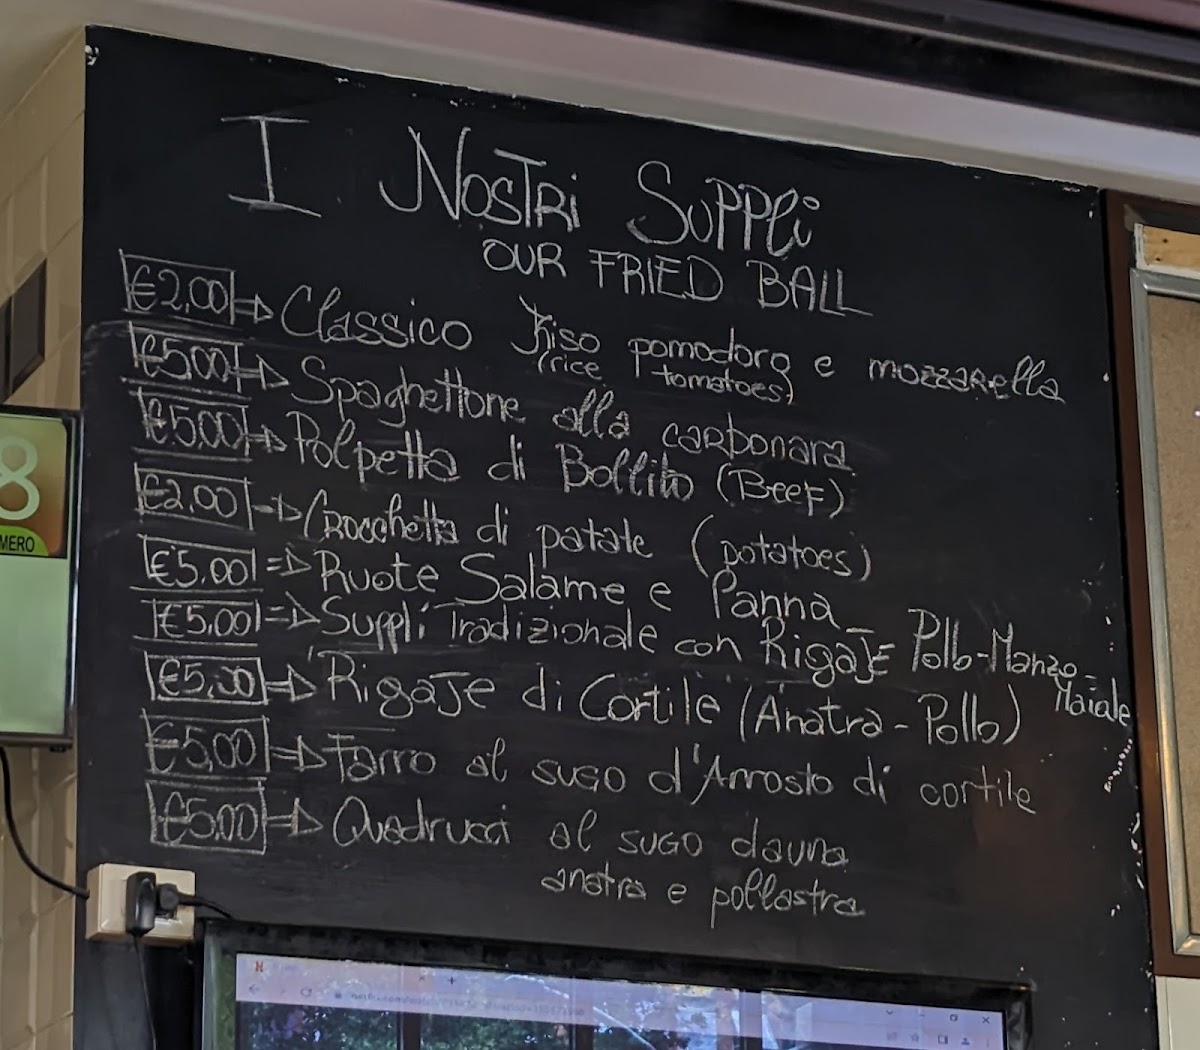 I NOSTRI SUPPLì
OUR FRIED BALL
€2,00 ⇒ Classico Riso pomodoro e mozzarella
(rice tomatoes)
€5,00 ⇒ Spaghettone alla carbonara
€5,00 ⇒ Polpetta di Bollito (BEEF)
€2,00 ⇒ Crocchetta di patate (potatoes)
€5,00 ⇒ Ruote Salame e Panna
€5,00 ⇒ Supplì Tradizionale con Rigaje Pollo-Manzo-
Maiale
€5,00 ⇒ Rigaje di Cortile (Anatra-Pollo)
€5,00 ⇒ Farro al sugo d'Arrosto di cortile
€5,00 ⇒ Quadrucci al sugo dauna
anatra e pollastra
8
MERO
N